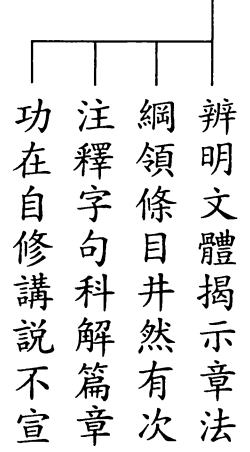 辨明文體揭示章法
綱領條目井然有次
注釋字句科解篇章
功在自修講説不宣